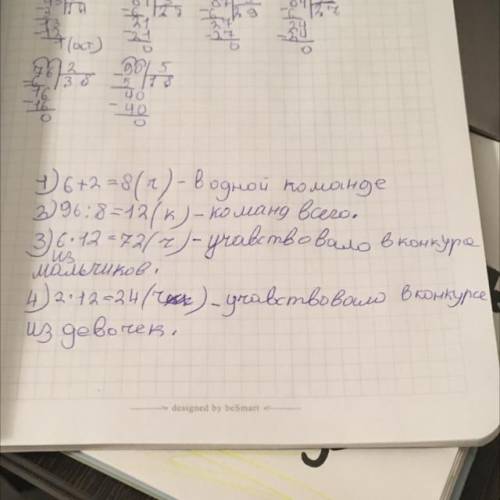 7(ост.)
76 2
6 38
16
16
0
90 5
5 18
40
40
0
1) 6+2=8(ч)-в одной команде
2) 96:8=12(к)-команд всего.
3) 6·12=72(ч)-учавствовало в конкурсе
из
мальчиков.
4) 2·12=24(ч)-учавствовало в конкурсе
из девочек.
designed by beSmart